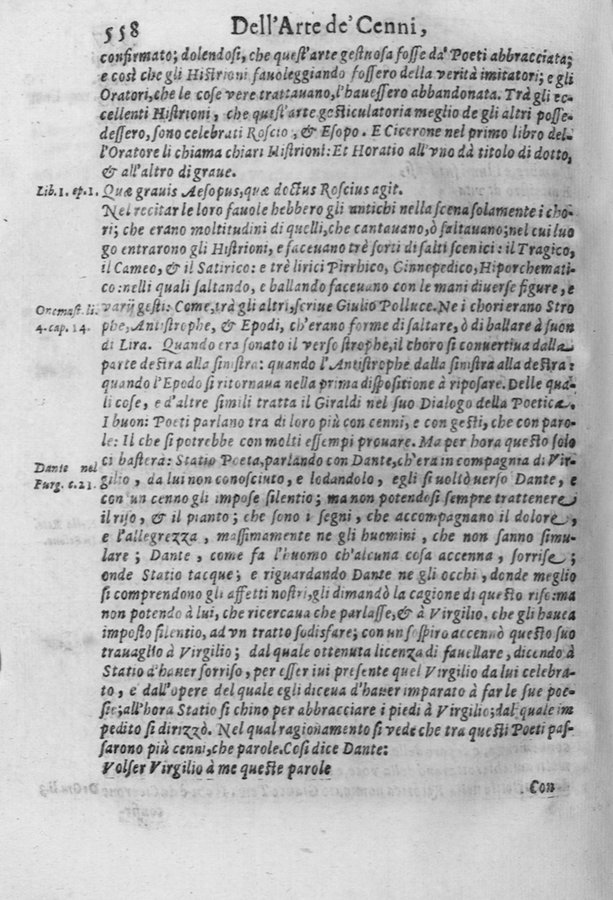 558 Dell'Arte de' Cenni,
confirmato; dolendosi, che quest'arte gestuosa fosse da' Poeti abbracciata;
e così che gli Histrioni fauoleggiando fossero della verità imitatori; e gli
Oratori, che le cose vere trattauano, l'hauessero abbandonata. Trà gli ec-
cellenti Histrioni, che quest'arte gesticulatoria meglio de gli altri posse-
dessero, sono celebrati Roscio, & Esopo. E Cicerone nel primo libro del-
l'Oratore li chiama chiari Histrioni: Et Horatio all'vno dà titolo di dotto,
& all'altro di graue.
Lib. 1. ep. 1. Quæ grauis Aesopus, quæ doctus Roscius agit.
Nel recitar le loro fauole hebbero gli antichi nella scena solamente i cho-
ri; che erano moltitudini di quelli, che cantauano, ò saltauano; nel cui luo
go entrarono gli Histrioni, e faceuano trè sorti di salti scenici: il Tragico,
il Cameo, & il Satirico: e trè lirici Pirrhico, Ginnepedico, Hiporchemati-
co: nelli quali saltando, e ballando faceuano con le mani diuerse figure, e
Onomast. li. varij gesti: Come, trà gli altri, scriue Giulio Polluce. Ne i chori erano Stro
4. cap. 14. phe, Antistrophe, & Epodi, ch'erano forme di saltare, ò di ballare à suon
di Lira. Quando era sonato il verso strophe, il choro si conuertiua dalla
parte destra alla sinistra: quando l'Antistrophe dalla sinistra alla destra:
quando l'Epodo si ritornaua nella prima dispositione à riposare. Delle qua-
li cose, e d'altre simili tratta il Giraldi nel suo Dialogo della Poetica.
I buoni Poeti parlano tra di loro più con cenni, e con gesti, che con paro-
le: Il che si potrebbe con molti essempi prouare. Ma per hora questo solo
Dante nel ci basterà: Statio Poeta, parlando con Dante, ch'era in compagnia di Vir-
Purg. c. 21. gilio, da lui non conosciuto, e lodandolo, egli si voltò verso Dante, e
con un cenno gli impose silentio; ma non potendosi sempre trattenere
il riso, & il pianto; che sono i segni, che accompagnano il dolore,
e l'allegrezza, massimamente ne gli huomini, che non sanno simu-
lare; Dante, come fa l'huomo ch'alcuna cosa accenna, sorrise;
onde Statio tacque; e riguardando Dante ne gli occhi, donde meglio
si comprendono gli affetti nostri, gli dimandò la cagione di questo riso: ma
non potendo à lui, che ricercaua che parlasse, & à Virgilio, che gli hauea
imposto silentio, ad vn tratto sodisfare; con un sospiro accennò questo suo
trauaglio à Virgilio; dal quale ottenuta licenza di fauellare, dicendo à
Statio d'hauer sorriso, per esser iui presente quel Virgilio da lui celebra-
to, e dall'opere del quale egli diceua d'hauer imparato à far le sue poe-
sie; all'hora Statio si chino per abbracciare i piedi à Virgilio; dal quale im
pedito si dirizzò. Nel qual ragionamento si vede che tra questi Poeti pas-
sarono più cenni, che parole. Così dice Dante:
Volser Virgilio à me queste parole
Con